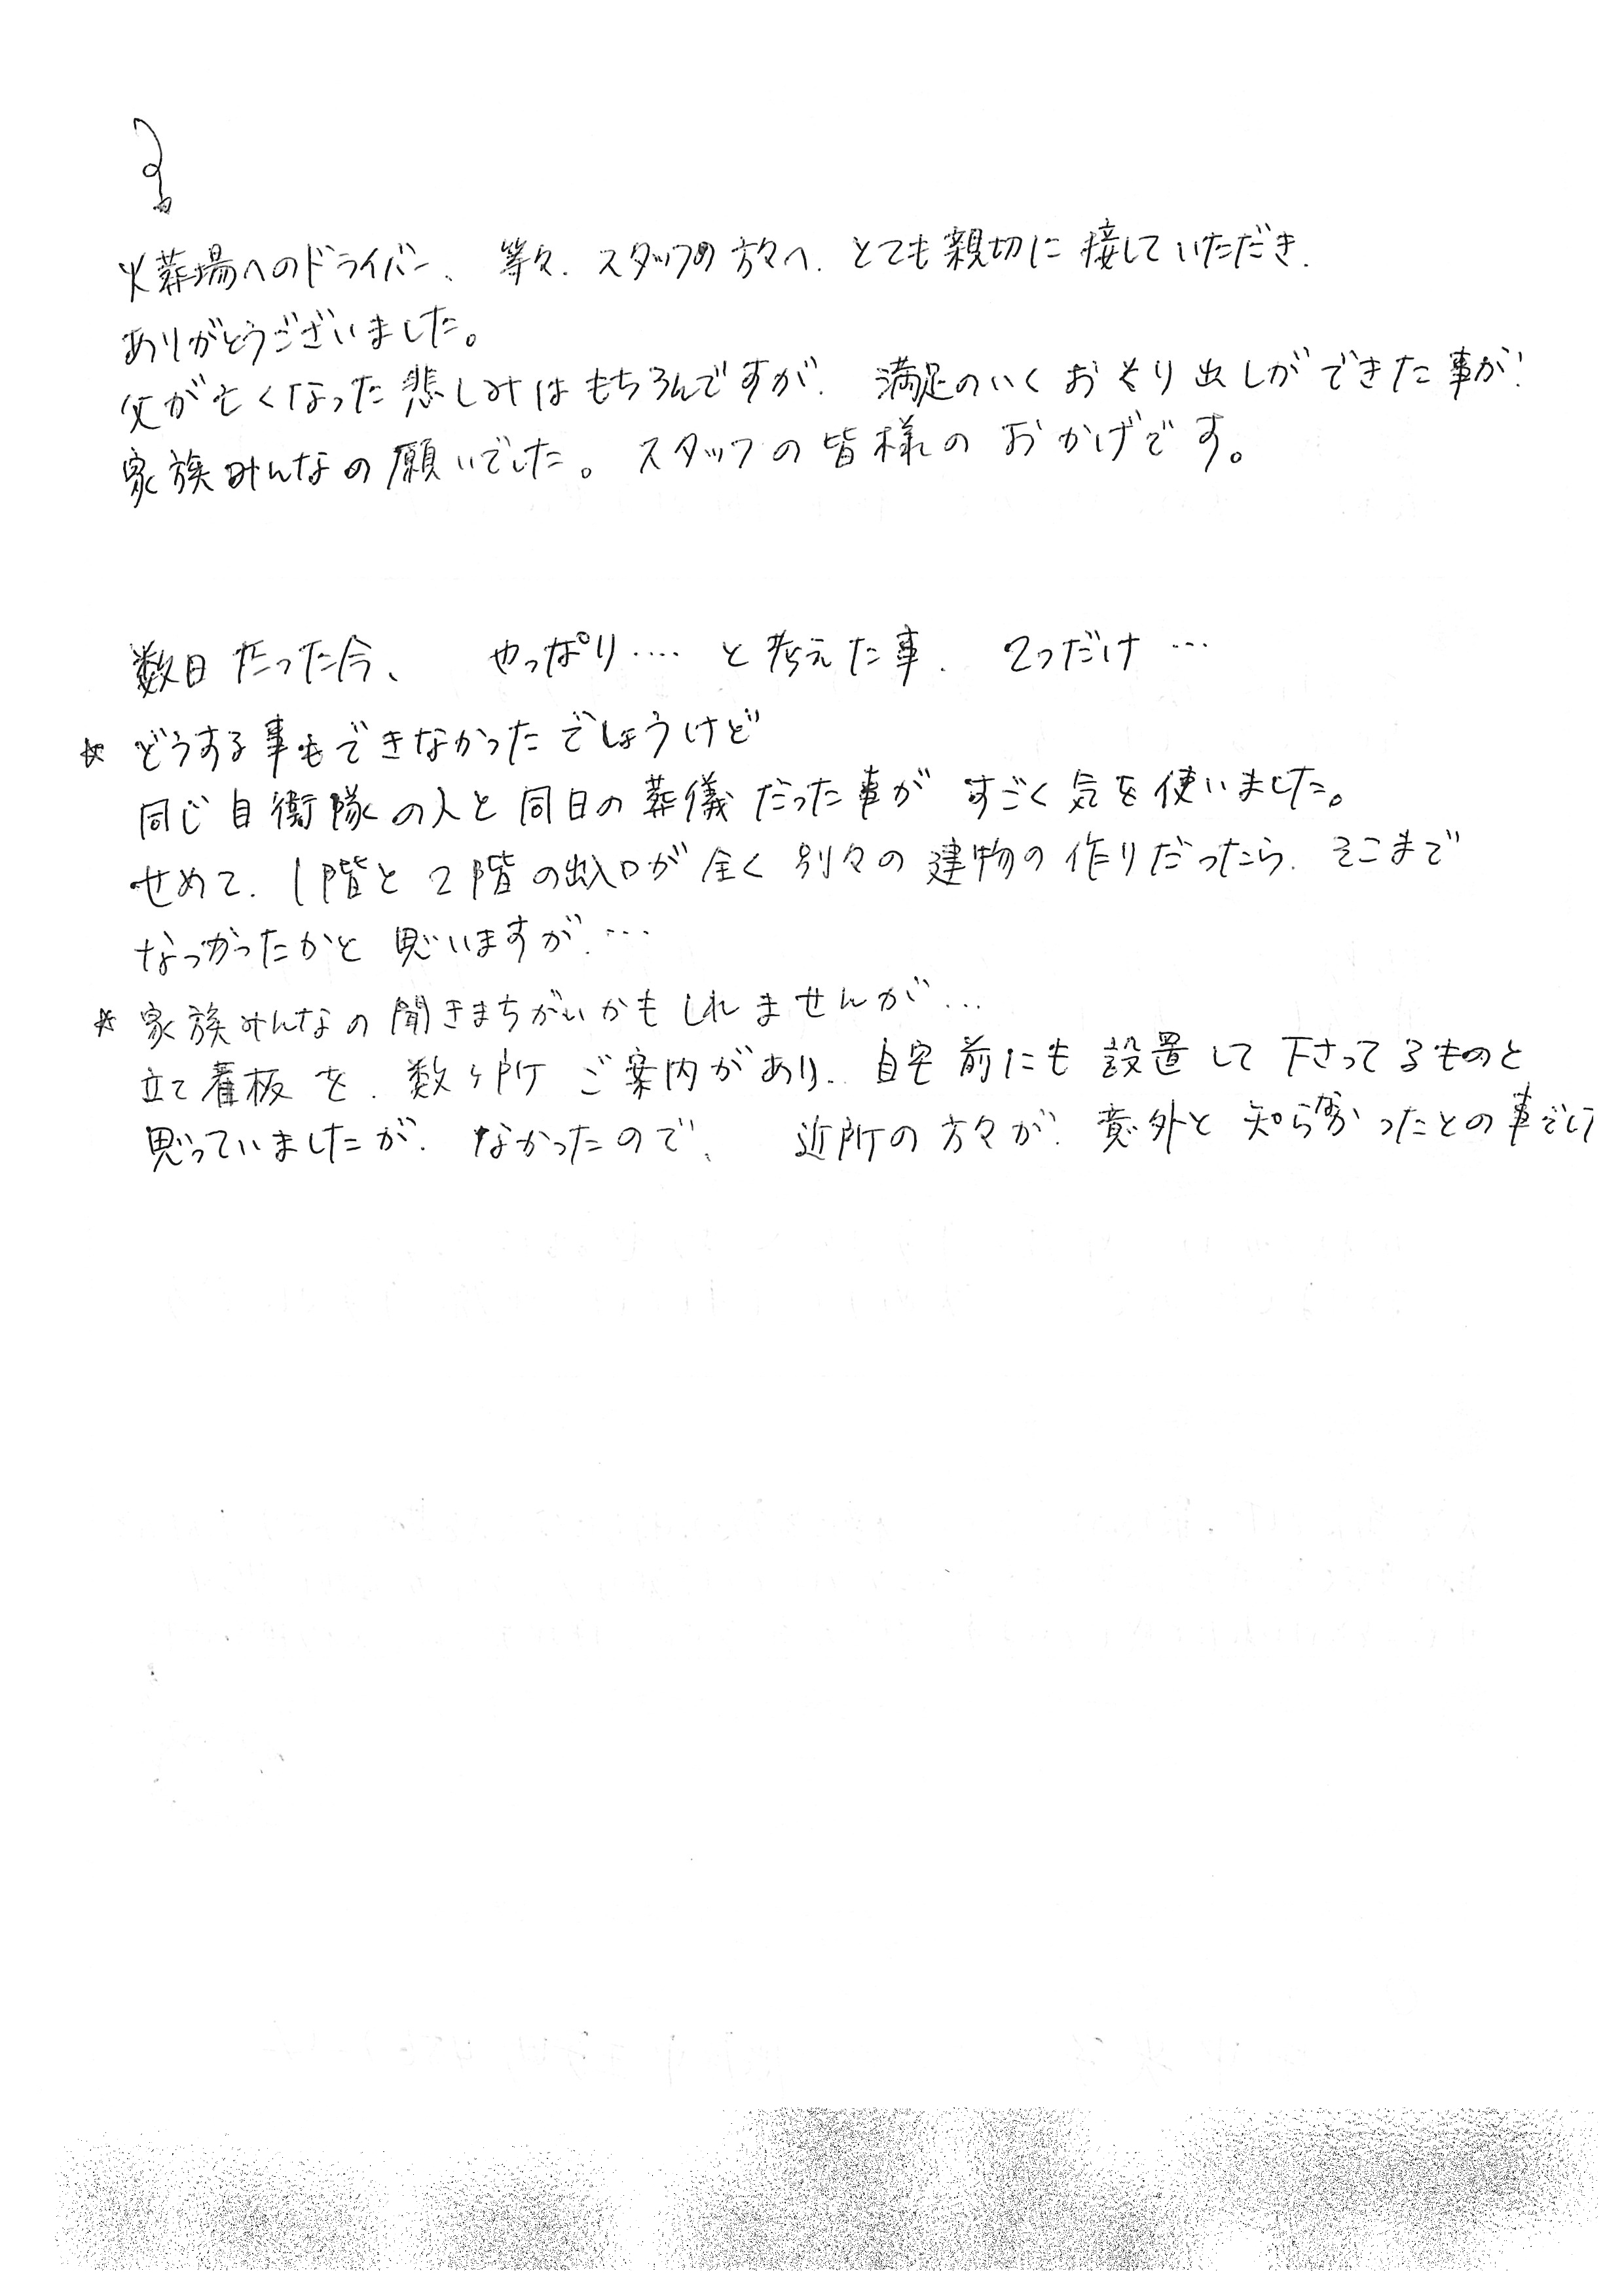 火葬場へのドライバー、等々、スタッフの方々へ、とても親切に接していただき、
ありがとうございました。
父が亡くなった悲しみはもちろんですが、満足のいくおくり出しができた事が、
家族みんなの願いでした。スタッフの皆様のおかげです。
数日たった今、やっぱり‥‥と考えた事、2つだけ…
☆どうする事もできなかったでしょうけど
同じ自衛隊の人と同日の葬儀だった事がすごく気を使いました。
せめて、1階と2階の出入口が全く別々の建物の作りだったら、そこまで
なっかったかと思いますが、…
☆家族みんなの聞きまちがいかもしれませんが…
立て看板を、数ヶ所ご案内があり、自宅前にも設置して下さってるものと
思っていましたが、なかったので、近所の方々が、意外と知らなかったとの事でし